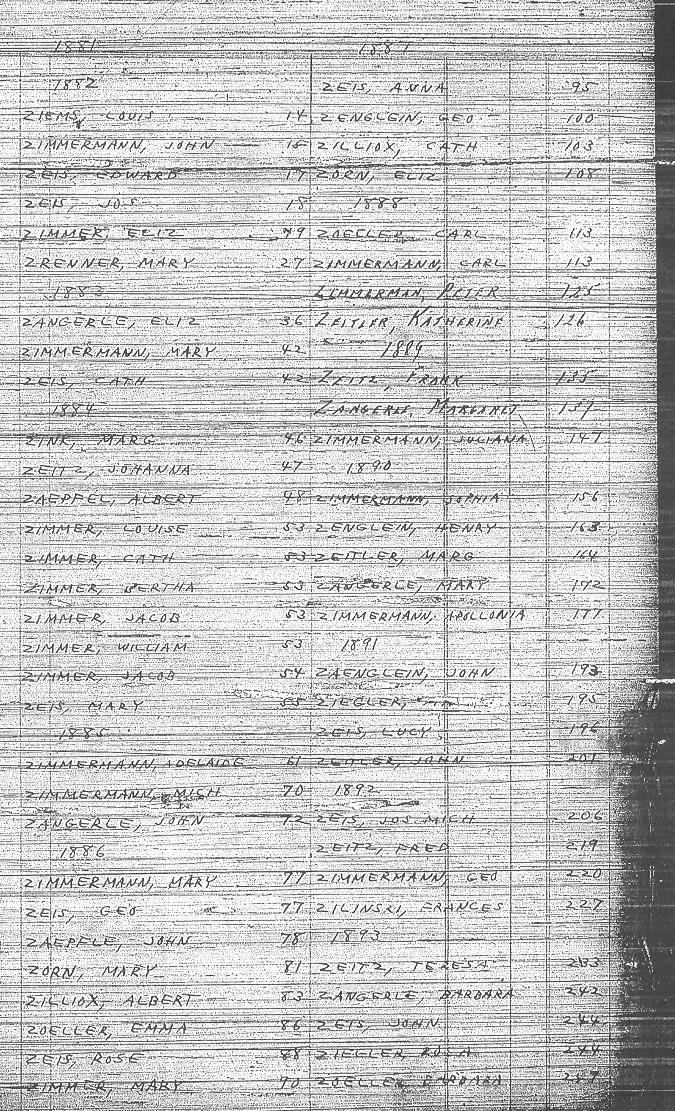 1881
1882
ZIEMS, LOUIS 14
ZIMMERMANN, JOHN
ZEIS, EDWARD 17
ZEIS, JOS 18
ZIMMER, ELIZ
ZRENNER, MARY 27
1883
ZANGERLE, ELIZ 36
ZIMMERMANN, MARY 42
ZEIS, CATH 42
1884
ZINK, MARG 46
ZEITZ, JOHANNA 47
ZAEPFEL, ALBERT 48
ZIMMER, LOUISE 53
ZIMMER, CATH 53
ZIMMER, BERTHA 53
ZIMMER, JACOB 53
ZIMMER, WILLIAM 53
ZIMMER, JACOB 54
ZEIS, MARY 55
1885
ZIMMERMANN, ADELAIDE 61
ZIMMERMANN, MICH 70
ZANGERLE, JOHN 72
1886
ZIMMERMANN, MARY 77
ZEIS, GEO 77
ZAEPFLE, JOHN 78
ZORN, MARY 81
ZILLIOX, ALBERT 83
ZOELLER, EMMA 86
ZEIS, ROSE 88
ZIMMER, MARY 90
1887
ZEIS, ANNA 95
ZENGLEIN, GEO 100
ZILLIOX, CATH 103
ZORN, ELIZ 108
1888
ZOELLER, CARL 113
ZIMMERMANN, CARL 113
ZIMMERMAN, PETER 125
ZEITLER, KATHERINE 126
1889
ZEITZ, FRANK 135
ZANGERLE, MARGARET 137
ZIMMERMANN, JULIANA 147
1890
ZIMMERMANN, SOPHIA 156
ZENGLEIN, HENRY 163
ZEITLER, MARG 164
ZANGERLE, MARY 172
ZIMMERMANN, APOLLONIA 177
1891
ZAENGLEIN, JOHN 193
ZIEGLER, 195
ZEIS, LUCY 196
JOHN 201
1892
ZEIS, JOS. MICH 206
ZEITZ, FRED 219
ZIMMERMANN, GEO 220
ZILINSKI, FRANCES 227
1893
ZEITZ, TERESA 233
ZANGERLE, BARBARA 242
ZEIS, JOHN 244
ZIEGLER, ROSA 244
ZOELLER, BARBARA